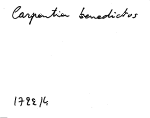 Carpentier benedictus
1782/4